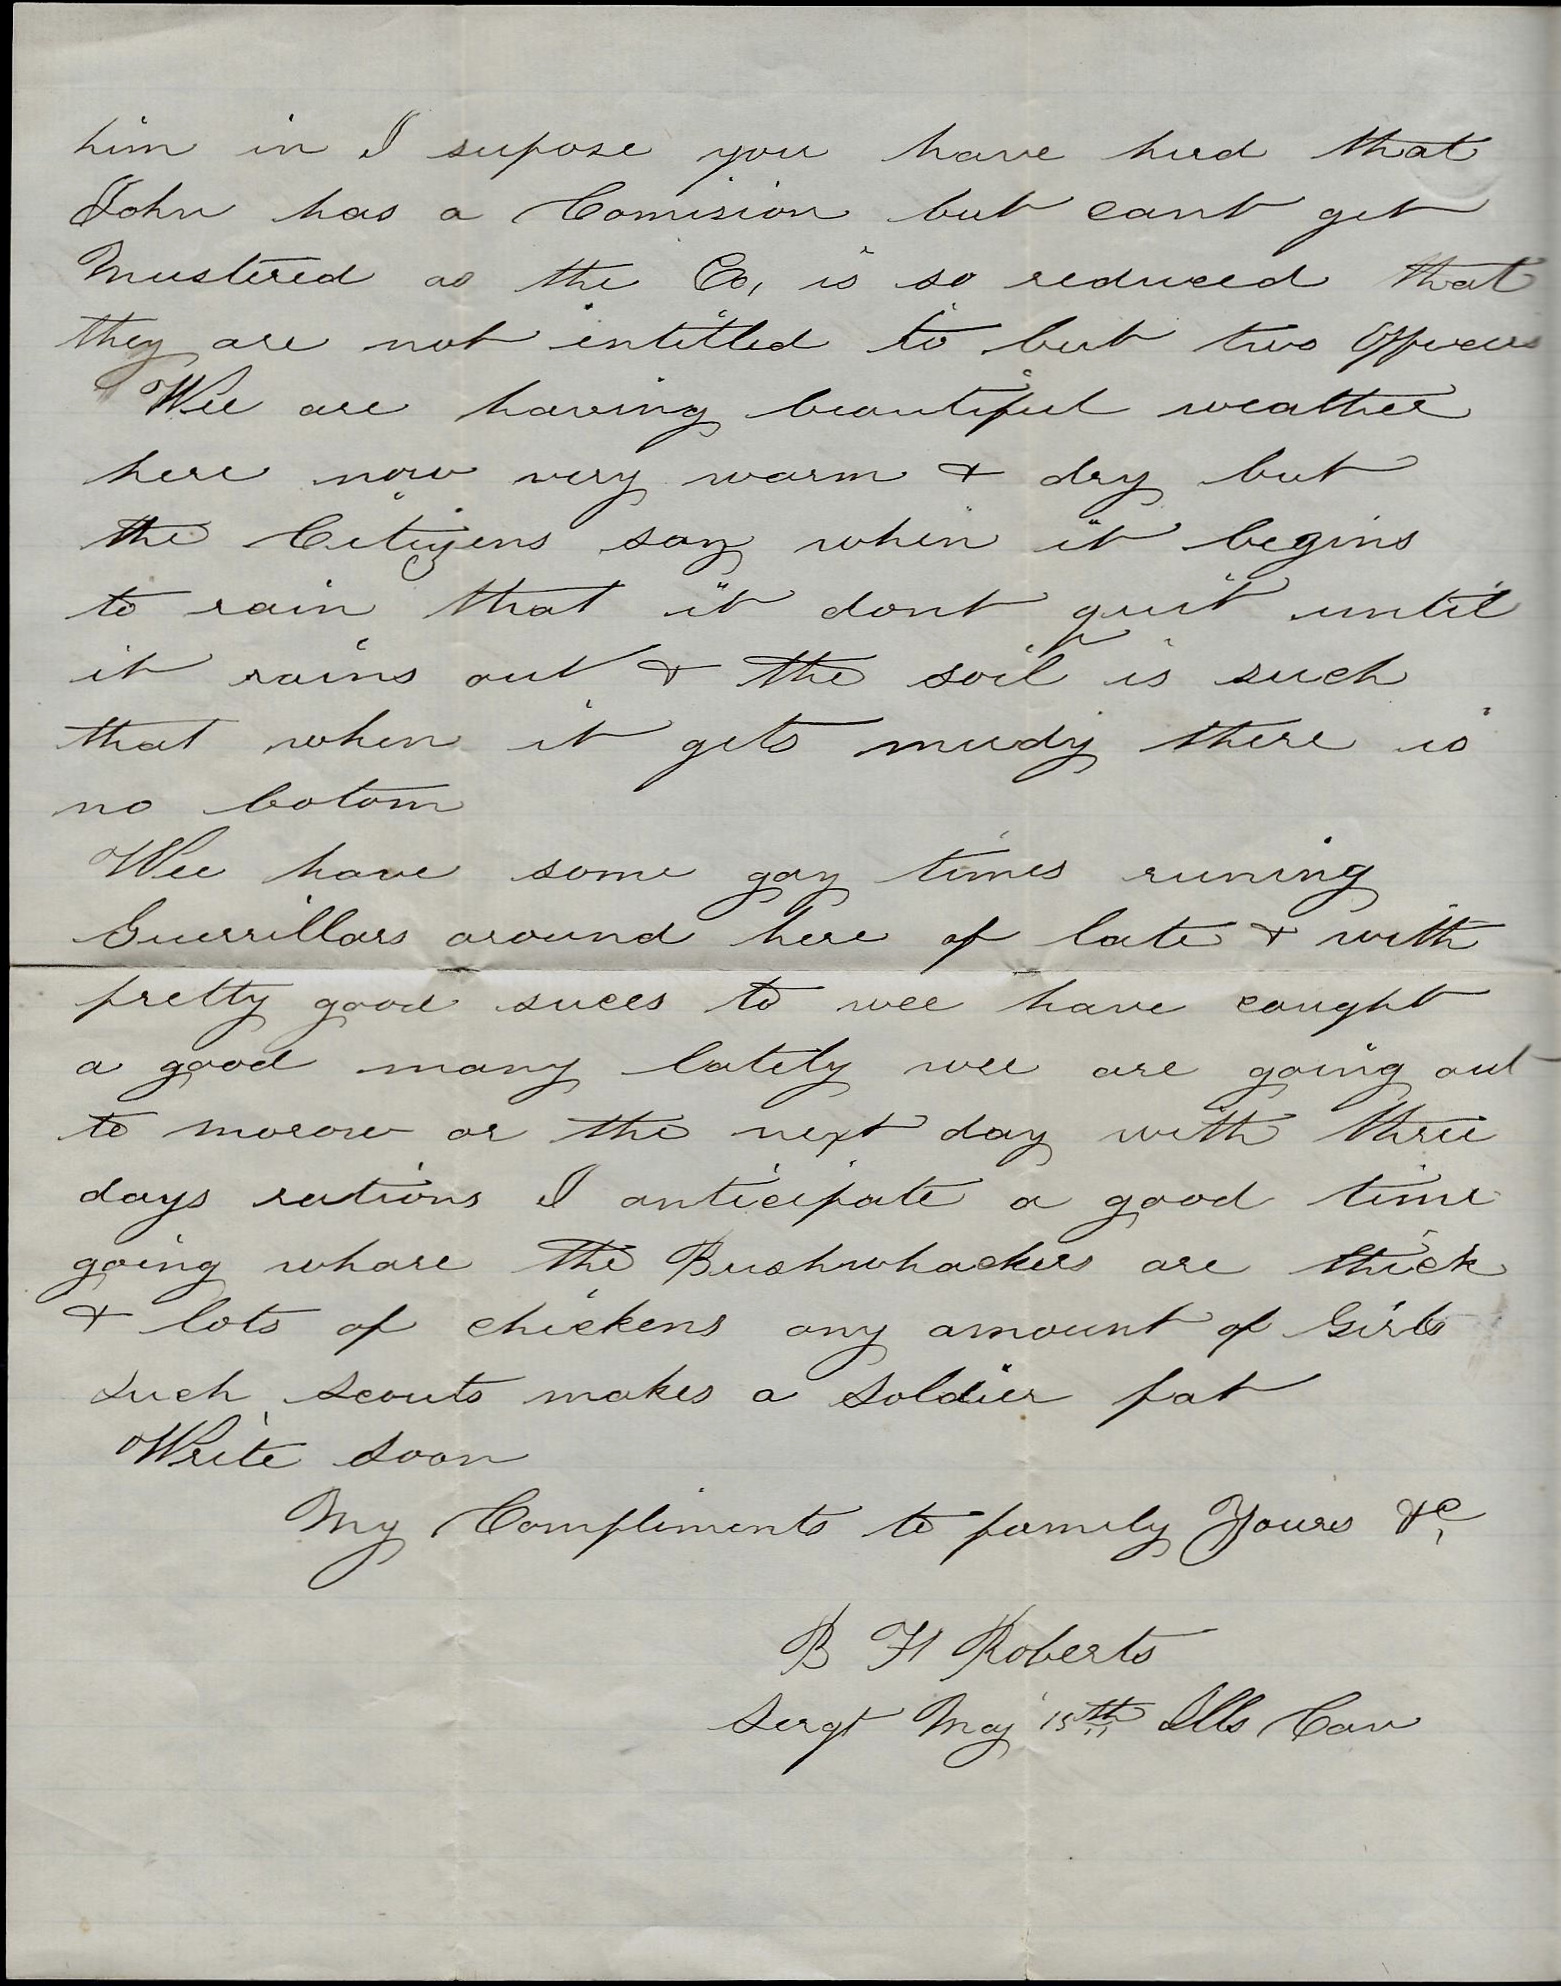 him in I supose you have hird that
John has a Comision but cant get
Mustered as the Co, is so reduced that
they are not intitled to but two Officers
Wee are having beautiful weather
here now very warm & dry but
the Citizens say when it begins
to rain that it dont quit until
it rains out & the soil is such
that when it gets mudy there is
no botom
Wee have some gay times runing
Guerrillars around here of late & with
pretty good sucess to wee have caught
a good many lately wee are going out
to morow or the next day with three
days rations I anticipate a good time
going whare the Bushwhackers are thick
& lots of chickens any amount of Girls
such scouts makes a soldier fat
Write soon
My Compliments to family Yours &c,
B H Roberts
Sergt Maj 15th Ills Cav